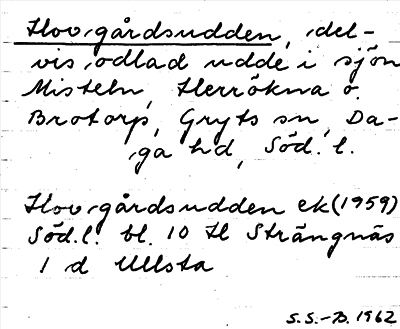 Hovgårdsudden, del-
vis odlad udde i sjön
Misteln, Herrökna o.
Brotorp, Gryts sn, Da-
ga hd, Söd. l.
Hovgårdsudden ek (1959)
Söd. l. bl. 10 H Strängnäs
1 d Ullsta
S.S.-B. 1962